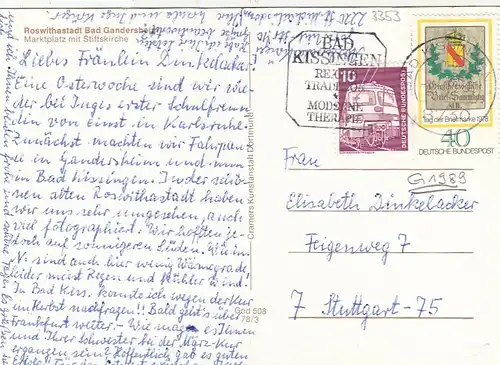 3353
Roswithastadt Bad Gandersheim
Marktplatz mit Stiftskirche
Liebes Fräulein Dinkelacker!
Eine Osterwoche sind wir wie-
der bei Inges erster Schulfreun-
din von einst in Karlsruhe.
Zunächst machten wir Fahrpau-
se in Gandersheim und nun
in Bad Kissingen. In der schö-
nen alten Roswithastadt haben
wir uns sehr umgesehen, auch
viel fotographiert. Wir hofften je-
doch auf sonnigeren Süden. Wie im
V. sind auch hier wenig Wärmegrade,
leider meist Regen und kühler Wind.
In Bad Kiss. konnte ich wegen der Kur
im Herbst nachfragen!! Bald geht's über
Frankfurt weiter. - Wie mag es Ihnen
und Ihrer Schwester bei der März-Kur
ergangen sein? Hoffentlich gab es guten
Cramers Kunstanstalt Dortmund
Gnd 508
78/3
BAD
KISSINGEN
REICHE
TRADITION
MODERNE
THERAPIE
BAD KISSINGEN
10
DEUTSCHE BUNDESPOST
Tag der Briefmarke 1978
40
DEUTSCHE BUNDESPOST
Frau
G 1989
Elisabeth Dinkelacker
Feigenweg 7
7 Stuttgart-75